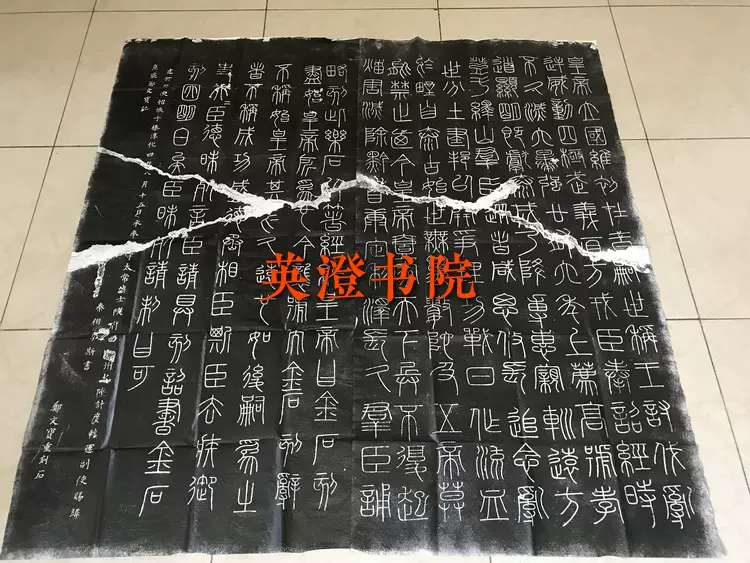 皇帝立國維初在昔嗣世稱王討伐亂
逆威動四極武義直方戎臣奉詔經時
不久滅六暴強廿有六年上薦高號孝
道顯明既獻泰成乃降專惠親巡遠方
登于繹山羣臣從者咸思攸長追念亂
世分土建邦以開爭理功戰日作流血
於野自泰古始世無萬數陀及五帝莫
能禁止乃今皇帝壹家天下兵不復起
災害滅除黔首康定利澤長久羣臣誦
略刻此樂石以著經紀皇帝曰金石刻
盡始皇帝所爲也今襲號而金石刻辭
不稱始皇帝其於久遠也如後嗣爲之
者不稱成功盛德丞相臣斯臣去疾御
史夫臣德昧死言臣請具刻詔書金石
刻因明白矣臣昧死請制曰可
淳化四年八月十五日承奉郎太常博士陝府西諸州水陸計度轉運副使賜緋
魚袋鄭文寶記
秦相李斯書
鄭文寶重刻石
英澄书院